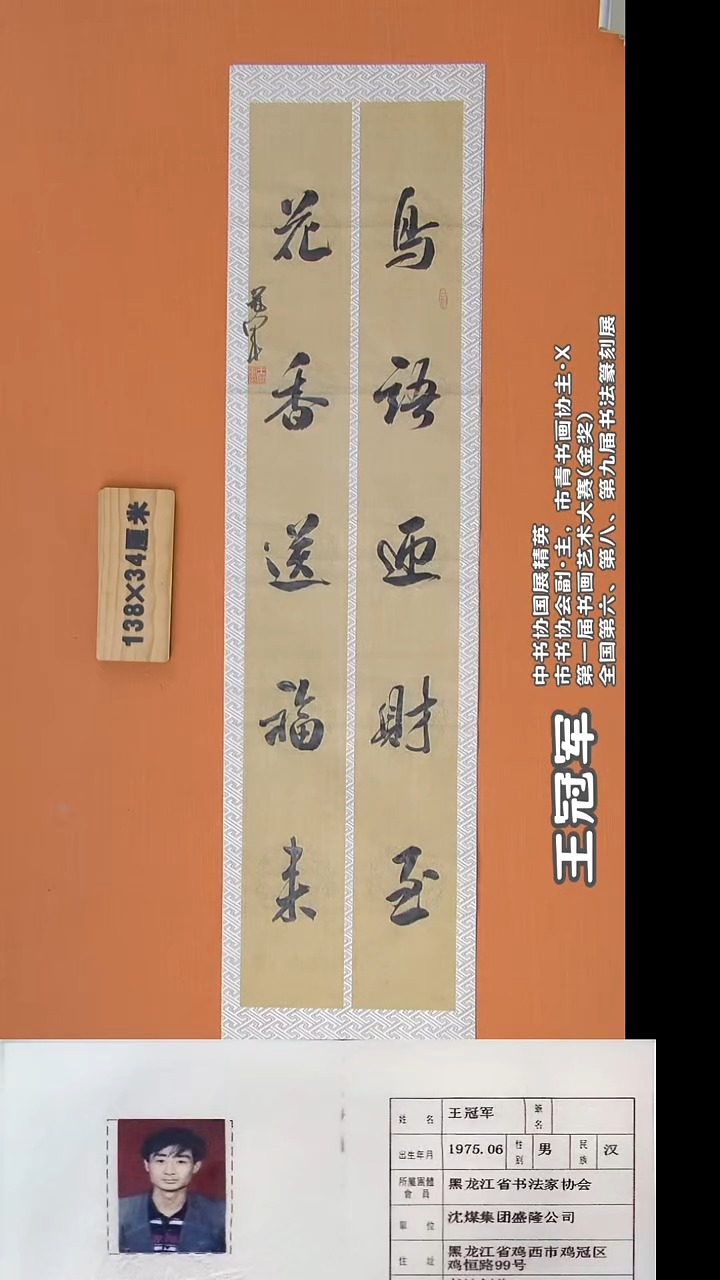 鳥語迎財至
花香送福来
冠軍
138×34厘米
王冠军
中书协国展精英
市书协会副·主，市青书画协主·X
第一届书画艺术大赛(金奖)
全国第六、第八、第九届书法篆刻展
姓 名 王冠军 筆名
出生年月 1975.06 性别 男 民族 汉
所屬團體會員 黑龙江省书法家协会
單 位 沈煤集团盛隆公司
住 址 黑龙江省鸡西市鸡冠区
鸡恒路99号